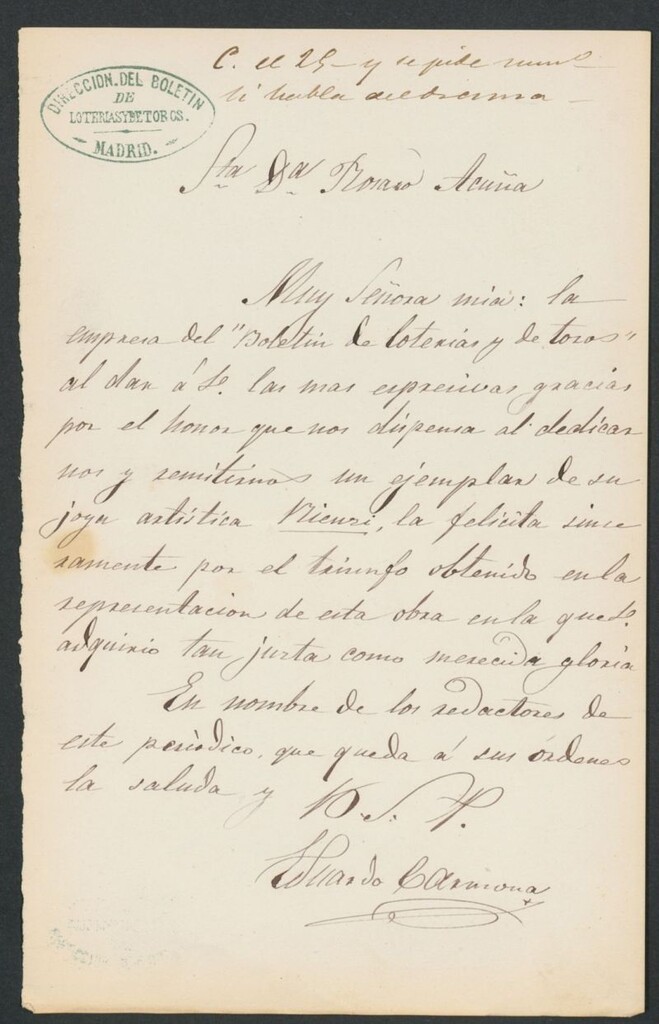 DIRECCION.DEL BOLETIN
DE
LOTERIAS Y DE TOROS.
MADRID.
C. el 25 - y se pide num.º
si habla del drama -
Sta Da Rosario Acuña
Muy Señora mia: la
empresa del "Boletin de loterias y de toros"
al dar á S.ª las mas espresivas gracias
por el honor que nos dispensa al dedicar
nos y remitirnos un ejemplar de su
joya artística Rienzi, la felicita since
ramente por el triunfo obtenido en la
representacion de esta obra en la que S.ª
adquirio tan justa como merecida gloria
En nombre de los redactores de
este periódico, que queda á sus órdenes
la saluda y B. S. P.
Eduardo Carmona